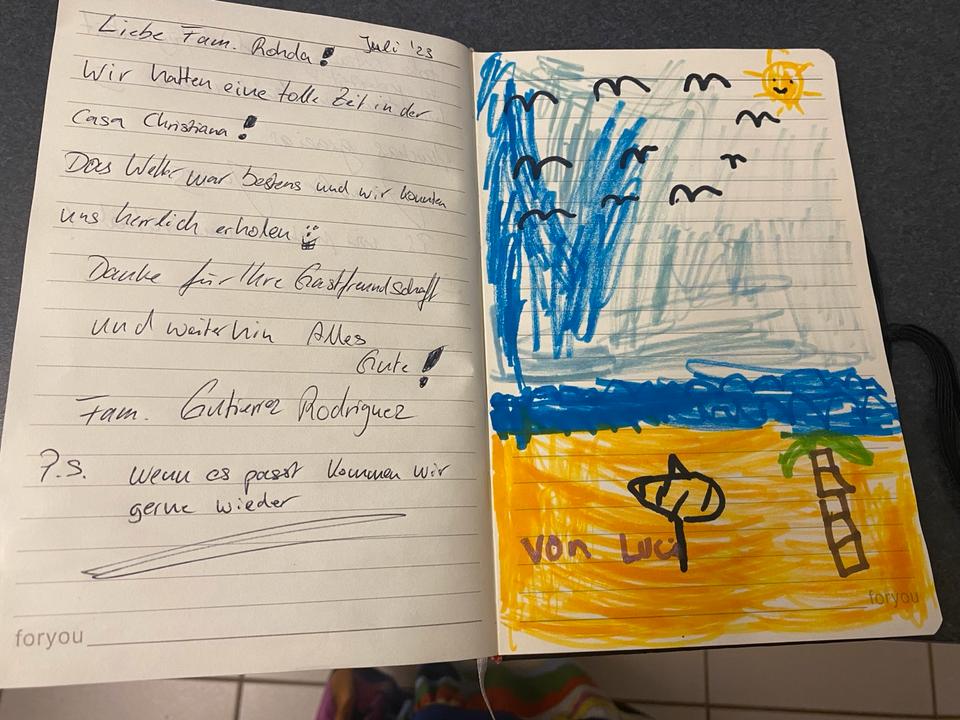 Liebe Fam. Rohda! Juli '23
Wir hatten eine tolle Zeit in der
Casa Christiana!
Das Wetter war bestens und wir konnten
uns herrlich erholen
Danke für Ihre Gastfreundschaft
und weiterhin Alles
Gute!
Fam. Gutierrez Rodriguez
P.S. Wenn es passt kommen wir
gerne wieder
foryou
von Luci
foryou